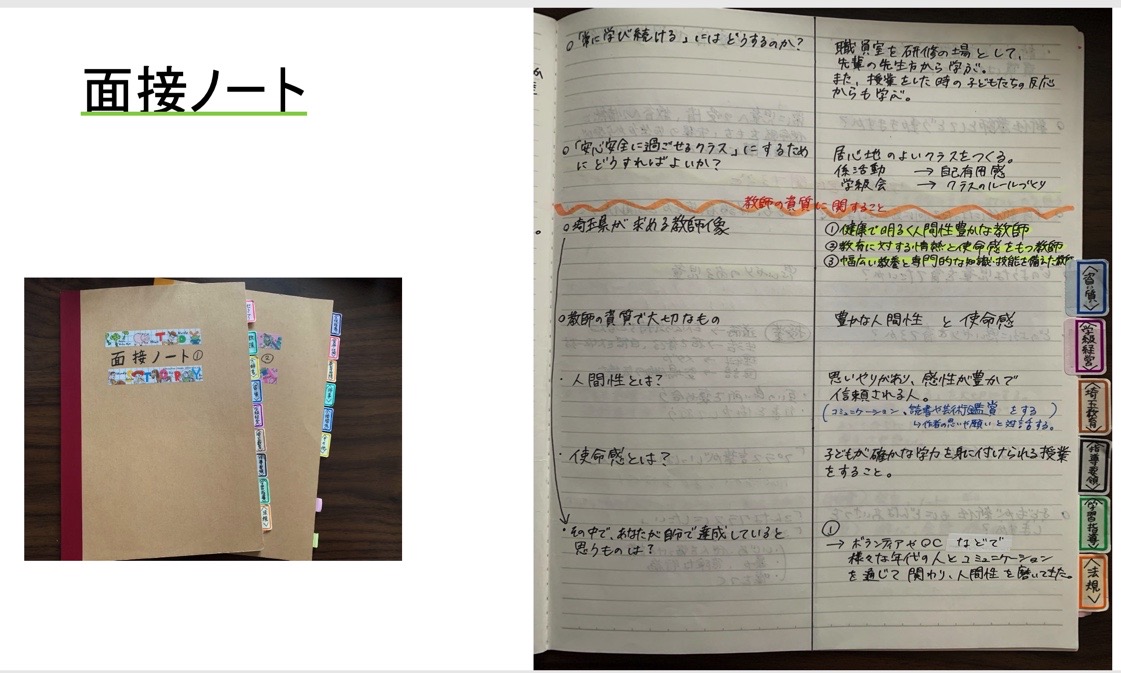 面接ノート
面接ノート①
②
○「常に学び続ける」にはどうするのか?
職員室を研修の場として、
先輩の先生方から学ぶ。
また、授業をした時の子どもたちの反応
からも学ぶ。
○「安心安全に過ごせるクラス」にするため
にどうすればよいか?
居心地のよいクラスをつくる。
係活動 → 自己有用感
学級会 → クラスのルールづくり
教師の資質に関すること
○埼玉県が求める教師像
①健康で明るく人間性豊かな教師
②教育に対する情熱と使命感をもつ教師
③幅広い教養と専門的な知識・技能を備えた教師
○教師の資質で大切なもの
豊かな人間性 と 使命感
・人間性とは?
思いやりがあり、感性が豊かで
信頼される人。
(コミュニケーション、読書や芸術鑑賞をする)
↳作者の思いや願いと対話する。
・使命感とは?
子どもが確かな学力を身に付けられる授業
をすること。
・その中で、あなたが自分で達成していると
思うものは?
①
→ ボランティアやOC などで
様々な年代の人とコミュニケーション
を通じて関わり、人間性を磨いてきた。
〈資質〉
〈学級経営〉
〈埼玉教育〉
〈指導要領〉
〈学習指導〉
〈法規〉